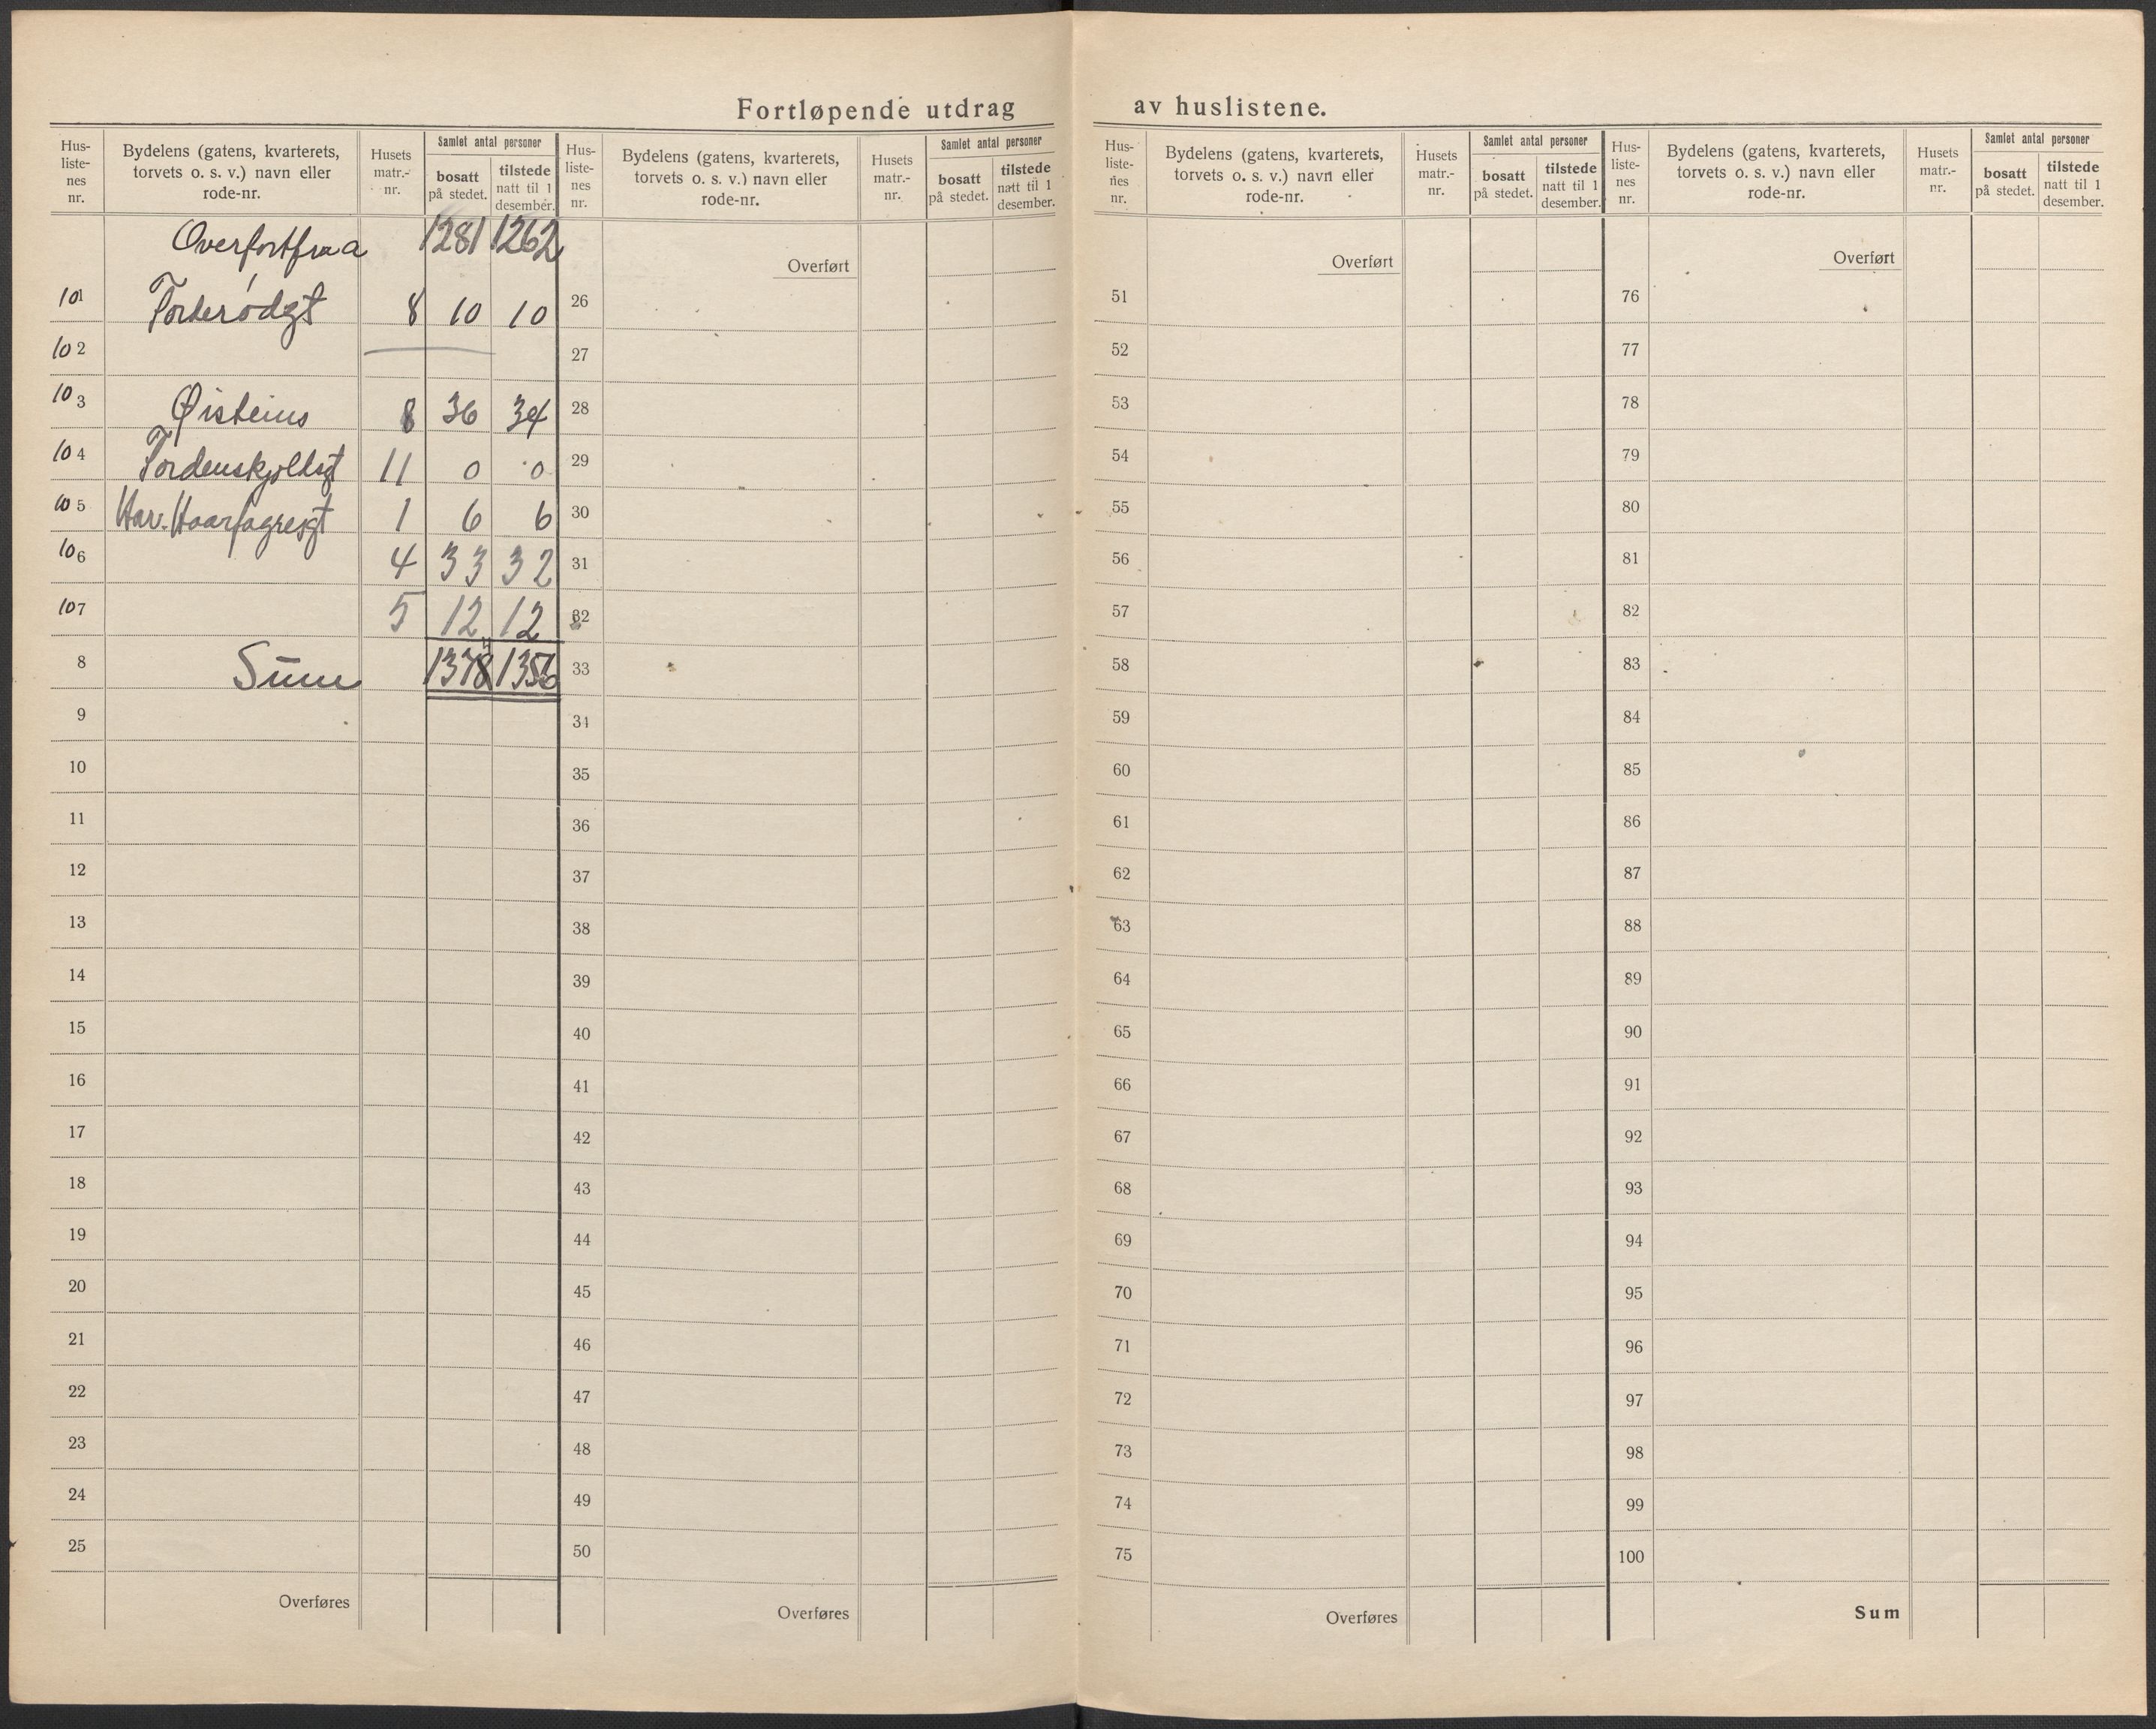 Fortløpende utdrag av huslistene.
Hus-listenes nr. Bydelens (gatens, kvarterets, torvets o. s. v.) navn eller rode-nr. Husets matr.-nr. Samlet antal personer bosatt på stedet. tilstede natt til 1 desember.
Overfort fraa 1281 1262
101 8 10 10
102
103 Øisteins 8 36 34
104 Tordenskjoldsgt 11 0 0
105 Har. Haarfagresgt 1 6 6
106 4 33 32
107 5 12 12
8 Sum 1378 1356
9
10
11
12
13
14
15
16
17
18
19
20
21
22
23
24
25
Overføres
Hus-listenes nr. Bydelens (gatens, kvarterets, torvets o. s. v.) navn eller rode-nr. Husets matr.-nr. Samlet antal personer bosatt på stedet. tilstede natt til 1 desember.
Overført
26
27
28
29
30
31
32
33
31
35
36
37
38
39
40
41
42
43
44
45
46
47
48
49
50
Overføres
Hus-listenes nr. Bydelens (gatens, kvarterets, torvets o. s. v.) navn eller rode-nr. Husets matr.-nr. Samlet antal personer bosatt på stedet. tilstede natt til 1 desember.
Overført
51
52
53
54
55
56
57
58
59
60
61
62
63
64
65
66
67
68
69
70
71
72
73
74
75
Overføres
Hus-listenes nr. Bydelens (gatens, kvarterets, torvets o. s. v.) navn eller rode-nr. Husets matr.-nr. Samlet antal personer bosatt på stedet. tilstede natt til 1 desember.
Overført
76
77
78
79
80
81
82
83
84
85
86
87
88
89
90
91
92
93
94
95
96
97
98
99
100
Sum